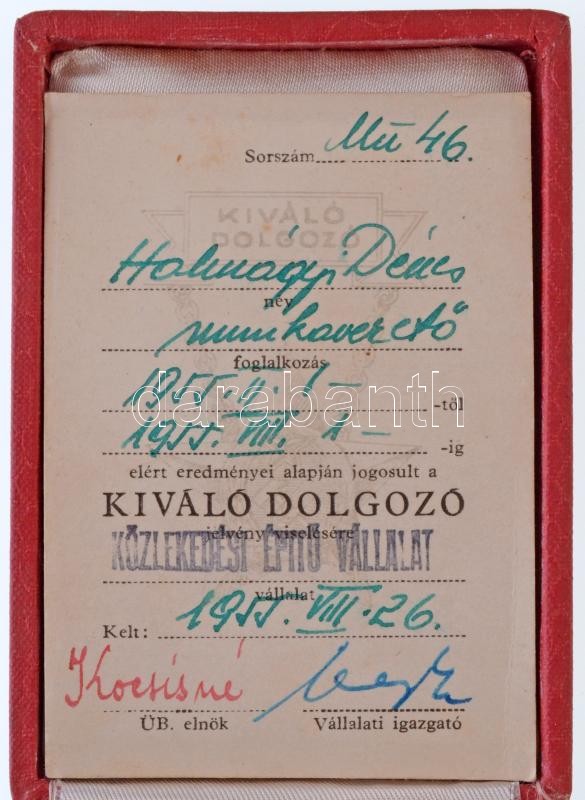 Sorszám Mü 46.
KIVÁLÓ
DOLGOZÓ
Halmágyi Dénes
név
munkavezető
foglalkozás
1955. II. 1 -
-től
darabanth
1955. VIII. 1 -
-ig
elért eredményei alapján jogosult a
KIVÁLÓ DOLGOZÓ
jelvény viselésére
KÖZLEKEDÉSI ÉPITŐ VÁLLALAT
vállalat
Kelt: 1955. VIII. 26.
Kocsisné
ÜB. elnök Vállalati igazgató